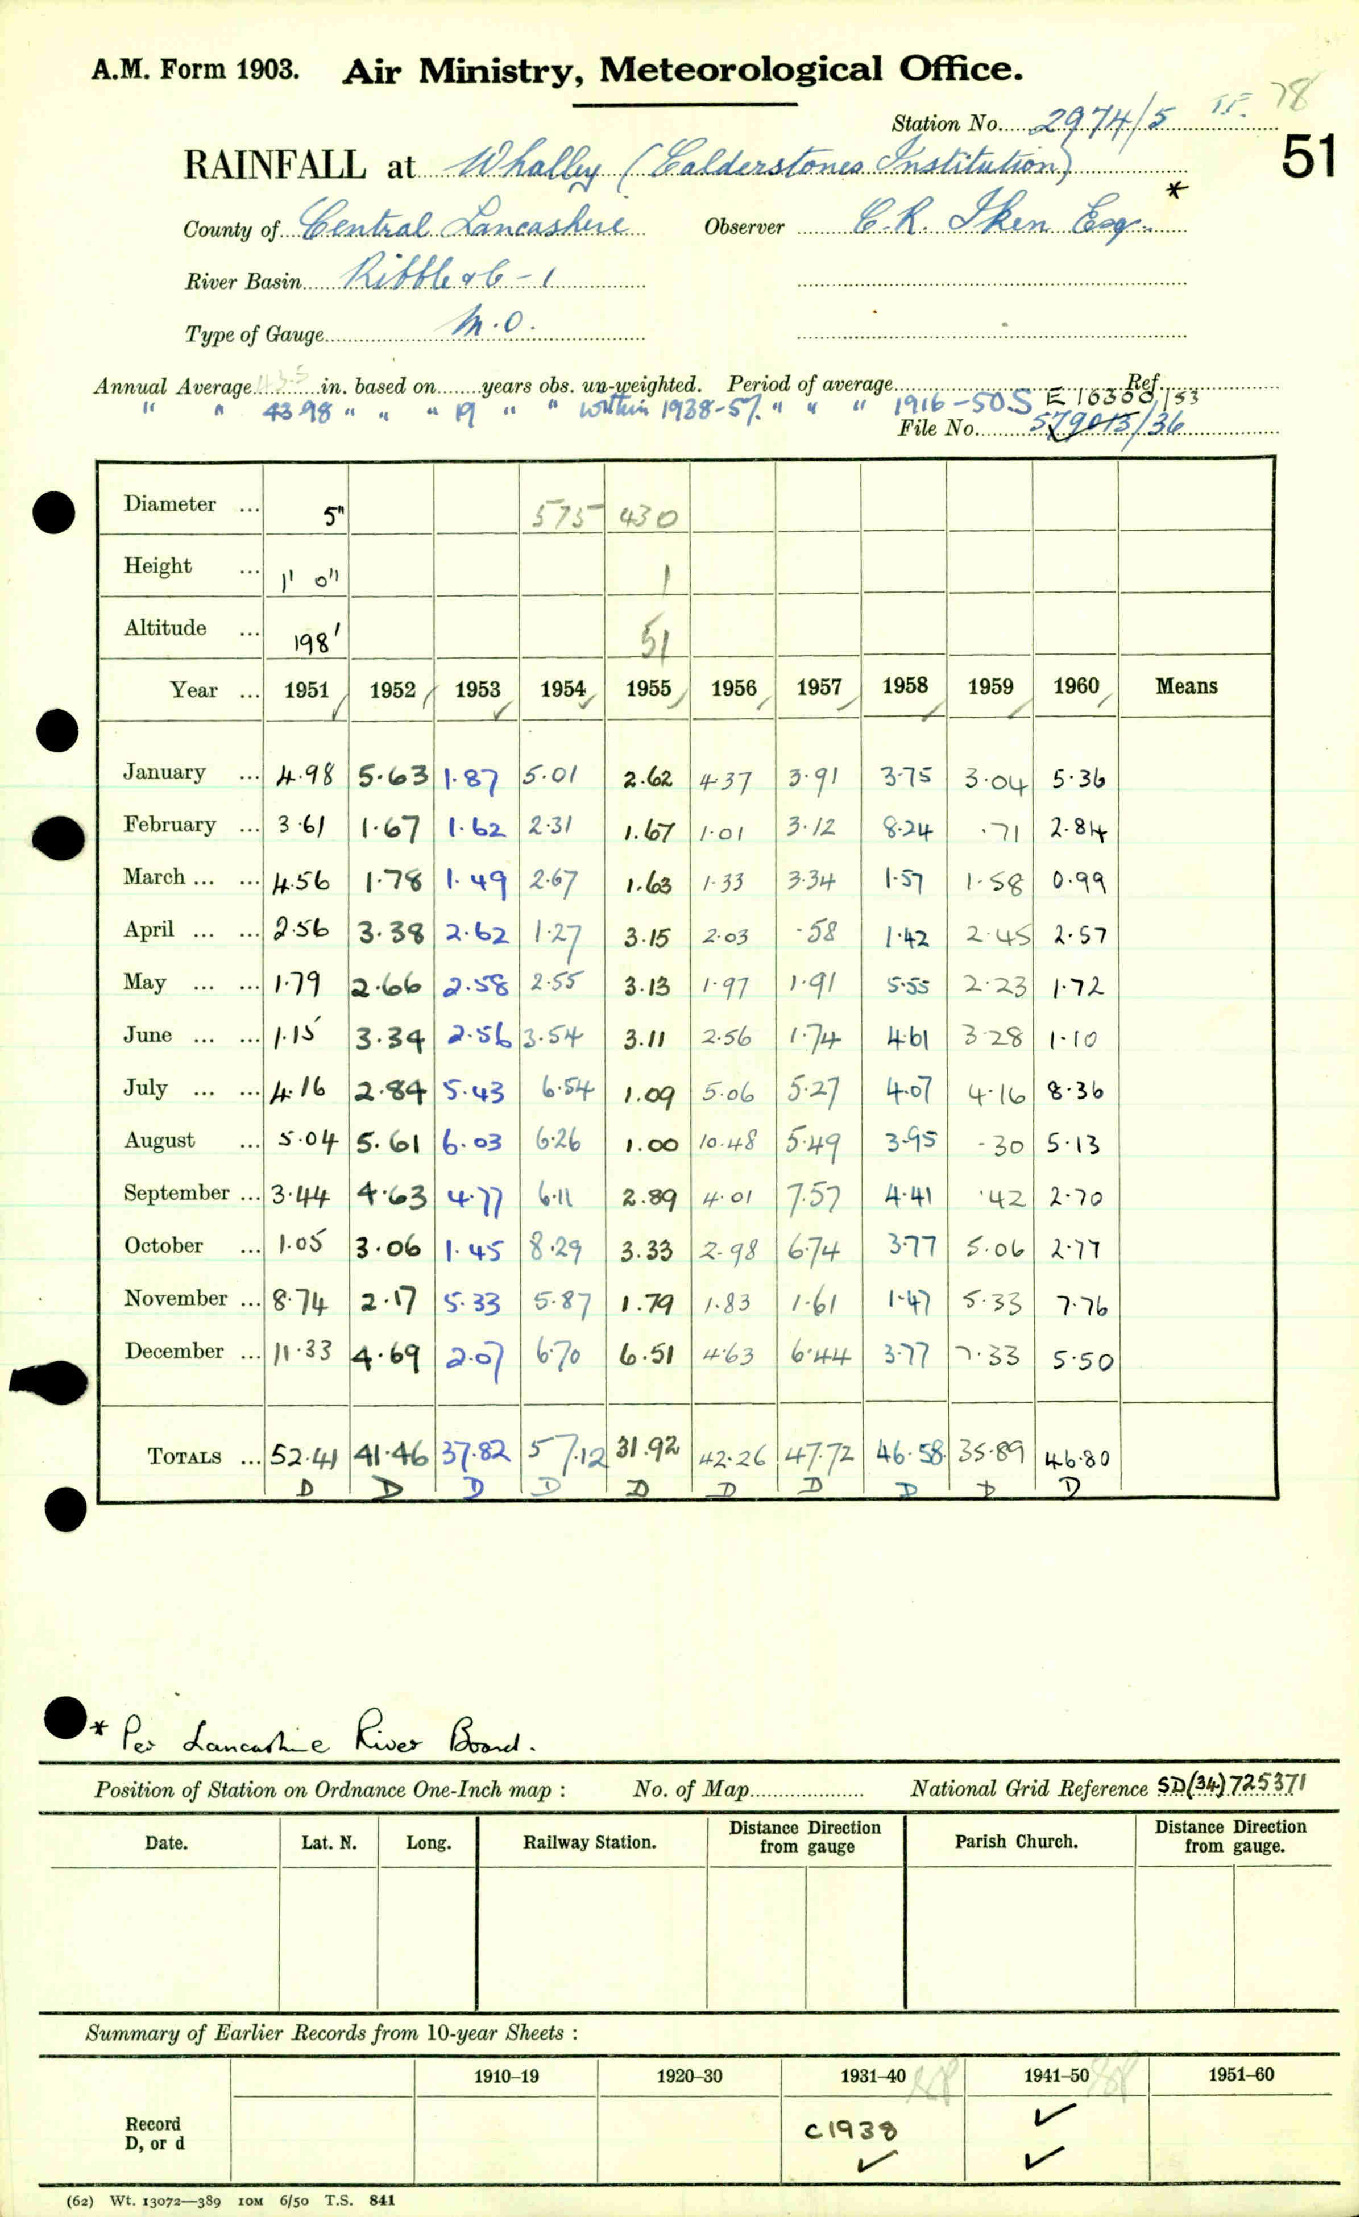 A.M. Form 1903. Air Ministry, Meteorological Office.
Station No. 2974/5 78
51
RAINFALL at Whalley (Calderstones Institution)
*
County of Central Lancashire Observer C.R. Iken Esq.
River Basin Ribble &c - 1
Type of Gauge M.O.
Annual Average 43.5 in. based on years obs. un-weighted. Period of average Ref. E 10300/53
" " 43.98 " " " 19 " " " within 1938-57. " " " 1916-50.S
File No. 579013/36
Diameter ... 5" 575 430
Height ... 1' 0" 1
Altitude ... 198' 51
Year ... 1951 1952 1953 1954 1955 1956 1957 1958 1959 1960 Means
January ... 4.98 5.63 1.87 5.01 2.62 4.37 3.91 3.75 3.04 5.36
February ... 3.61 1.67 1.62 2.31 1.67 1.01 3.12 8.24 .71 2.84
March ... ... 4.56 1.78 1.49 2.67 1.63 1.33 3.34 1.57 1.58 0.99
April ... ... 2.56 3.38 2.62 1.27 3.15 2.03 .58 1.42 2.45 2.57
May ... ... 1.79 2.66 2.58 2.55 3.13 1.97 1.91 5.55 2.23 1.72
June ... ... 1.15 3.34 2.56 3.54 3.11 2.56 1.74 4.61 3.28 1.10
July ... ... 4.16 2.84 5.43 6.54 1.09 5.06 5.27 4.07 4.16 8.36
August ... 5.04 5.61 6.03 6.26 1.00 10.48 5.49 3.95 .30 5.13
September ... 3.44 4.63 4.77 6.11 2.89 4.01 7.57 4.41 .42 2.70
October ... 1.05 3.06 1.45 8.29 3.33 2.98 6.74 3.77 5.06 2.77
November ... 8.74 2.17 5.33 5.87 1.79 1.83 1.61 1.47 5.33 7.76
December ... 11.33 4.69 2.07 6.70 6.51 4.63 6.44 3.77 7.33 5.50
TOTALS ... 52.41 41.46 37.82 57.12 31.92 42.26 47.72 46.58 35.89 46.80
D D D D D D D D D D
* Per Lancashire River Board.
Position of Station on Ordnance One-Inch map : No. of Map National Grid Reference SD(34)725371
Date. Lat. N. Long. Railway Station. Distance Direction from gauge Parish Church. Distance Direction from gauge.
Summary of Earlier Records from 10-year Sheets :
1910–19 1920–30 1931–40 1941–50 1951–60
Record
D, or d C1938 ✓ ✓ ✓
(62) Wt. 13072—389 10M 6/50 T.S. 841